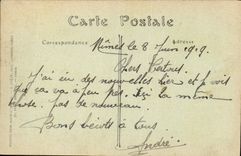 Carte Postale
Correspondance
Nîmes le 8 Juin 1909.
Chers
J'ai eu des nouvelles hier et je vois
que ça va à peu près. Ici la même
chose. pas de nouveau.
Bons baisers à tous.
André.